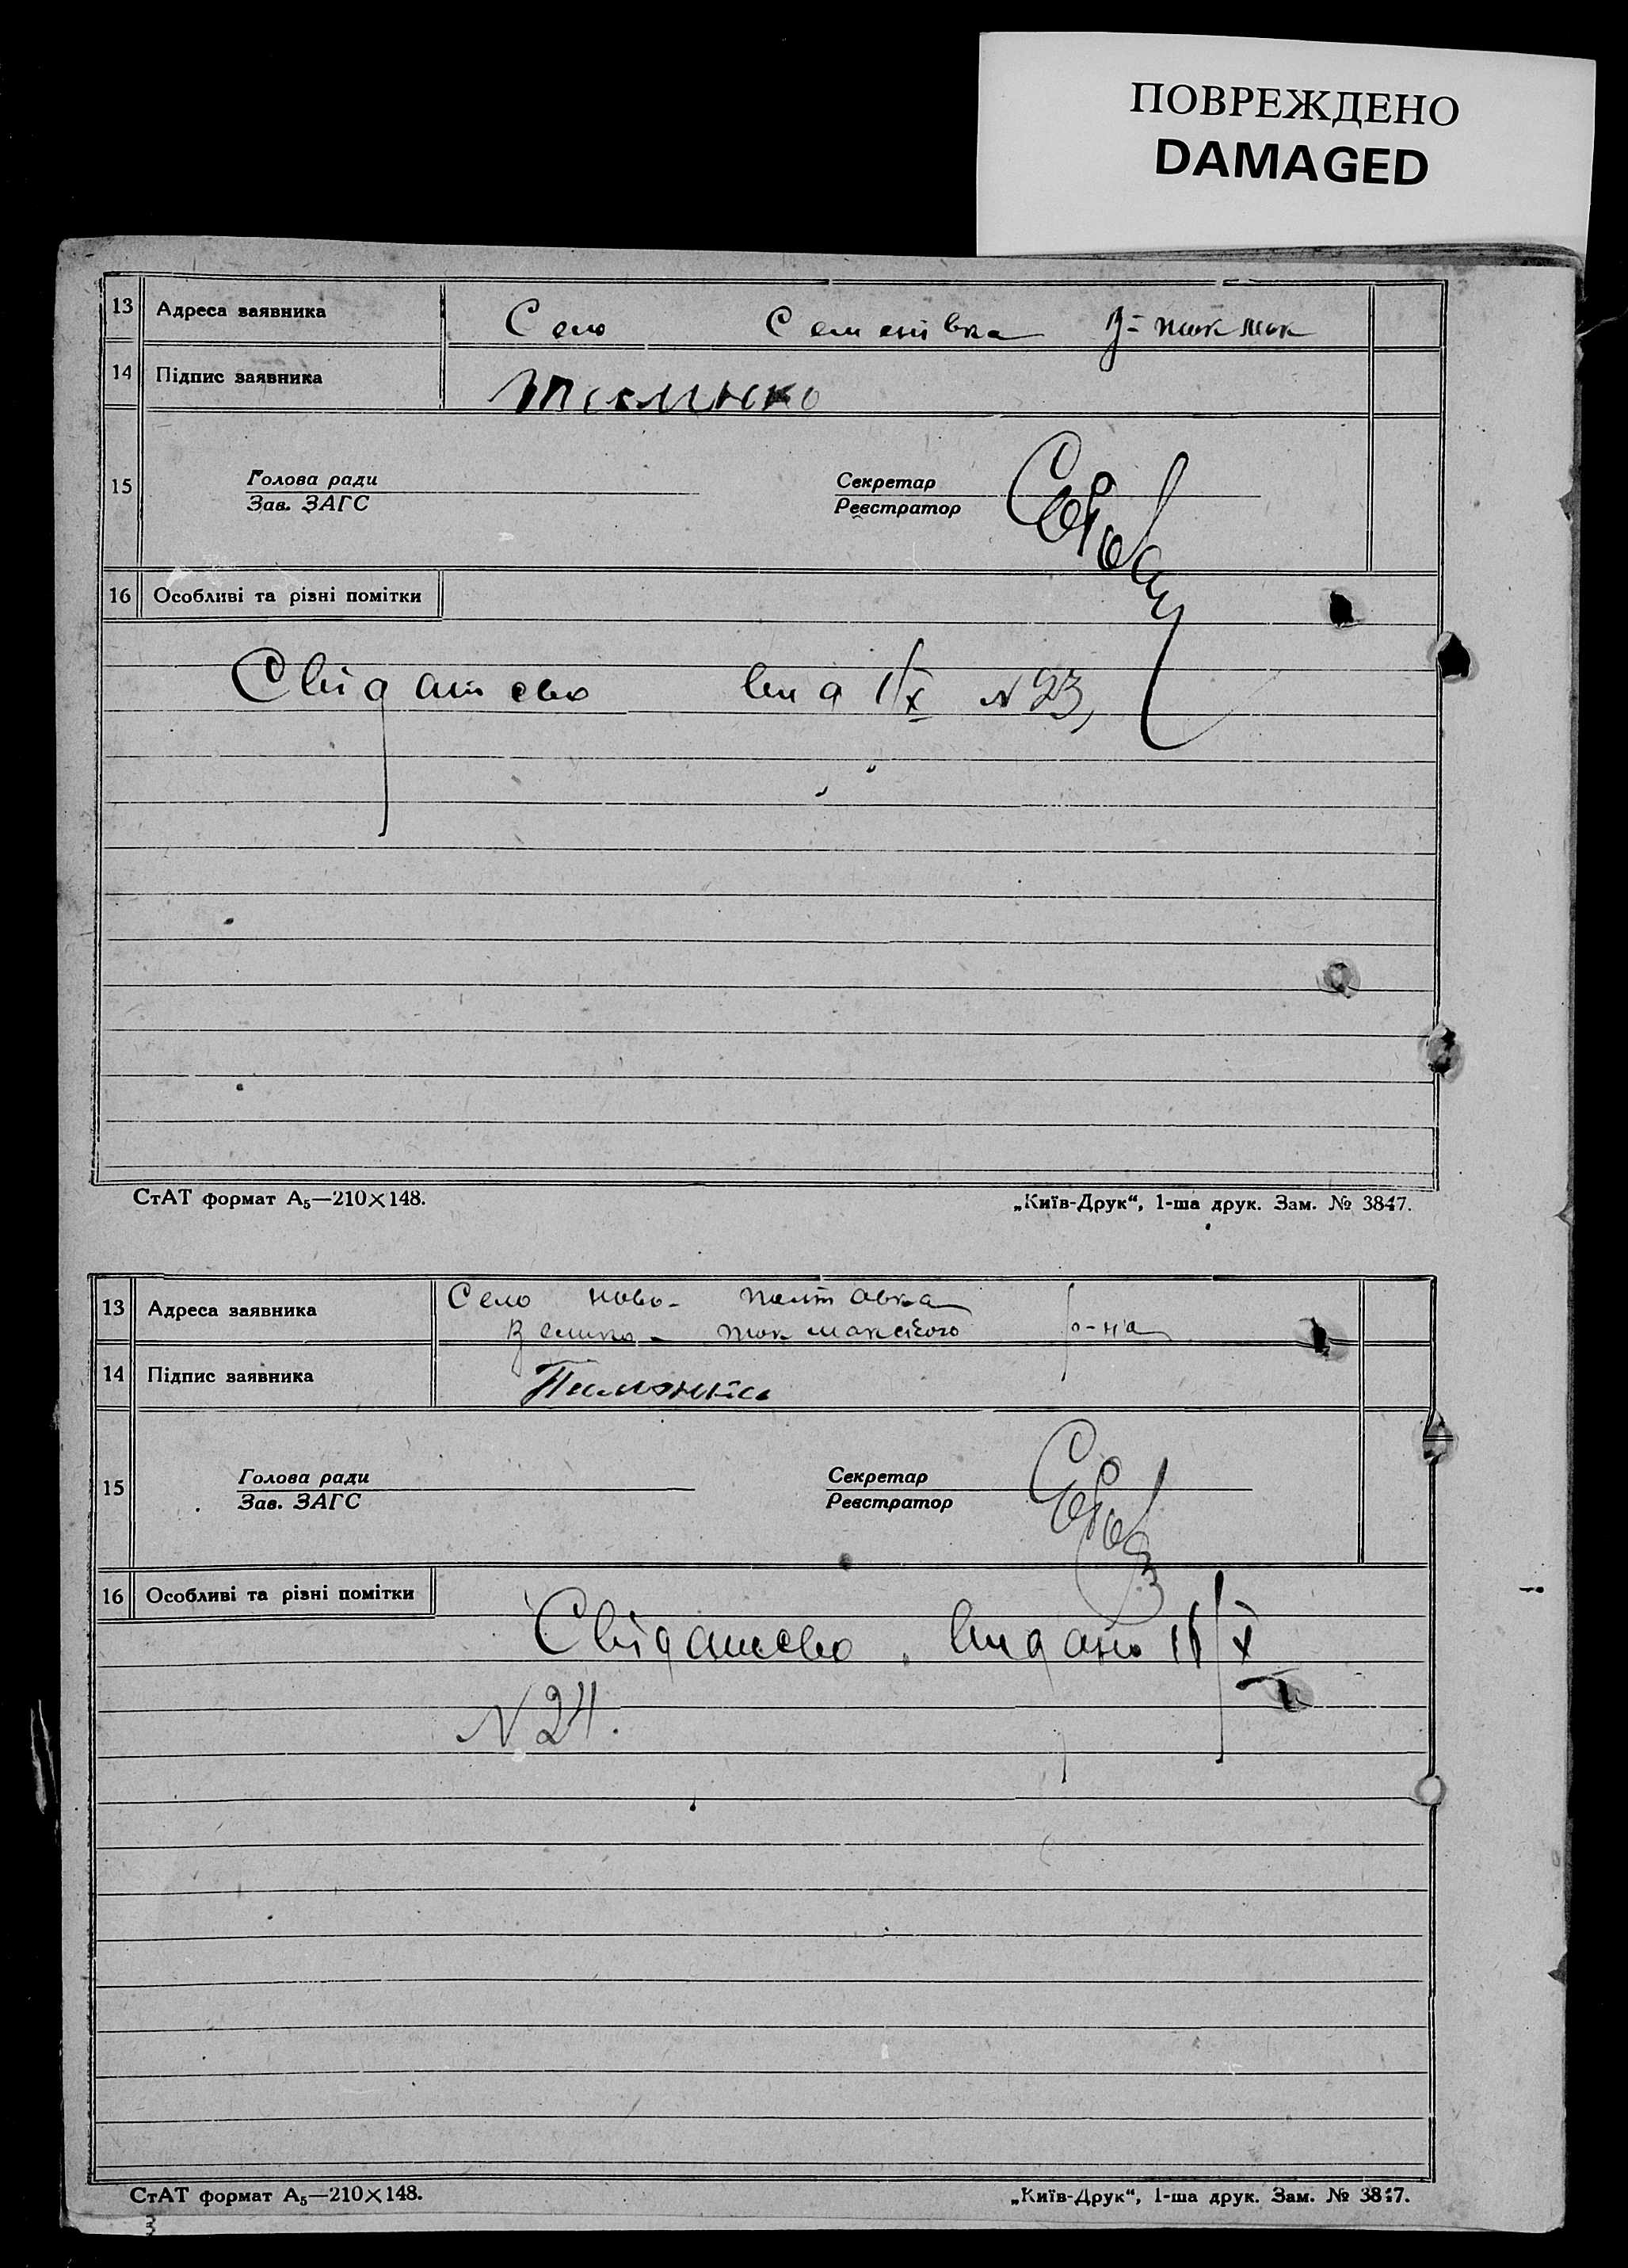 ПОВРЕЖДЕНО
DAMAGED
13 Адреса заявника Село Семенівка В-ток мок
14 Підпис заявника
15 Голова ради Секретар
Зав. ЗАГС Реєстратор
16 Особливі та різні помітки
Свідатсво вид 1/X N 23,
СтАТ формат А₅—210×148. „Київ-Друк“, 1-ша друк. Зам. № 3847.
13 Адреса заявника Село ново- полтавка
Велико-токмакського р-на
14 Підпис заявника
15 Голова ради Секретар
Зав. ЗАГС Реєстратор
16 Особливі та різні помітки
Свідатсво видано 11/X
N 24.
СтАТ формат А₅—210×148. „Київ-Друк“, 1-ша друк. Зам. № 3847.
3